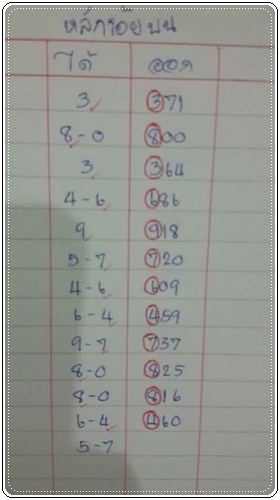 หลักร้อยบน
ได้ ออก
3 371
8-0 800
3 364
4-6 686
9 918
5-7 720
4-6 609
6-4 459
9-7 737
8-0 825
8-0 816
6-4 460
5-7